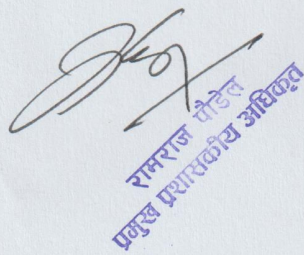 रामराज पौडेल
प्रमुख प्रशासकीय अधिकृत